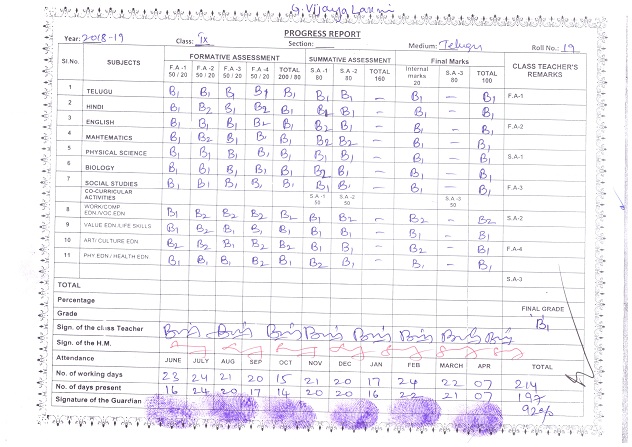 G. Vijaya Laxmi
PROGRESS REPORT
Year: 2018-19 Class: IX Section: Medium: Telugu Roll No.: 19
Sl.No. SUBJECTS FORMATIVE ASSESSMENT SUMMATIVE ASSESSMENT Final Marks CLASS TEACHER'S REMARKS
F.A -1 50 / 20 F.A -2 50 / 20 F.A -3 50 / 20 F.A -4 50 / 20 TOTAL 200 / 80 S.A -1 80 S.A -2 80 TOTAL 160 Internal marks 20 S.A -3 80 TOTAL 100
1 TELUGU B1 B1 B1 B1 B1 B1 B1 – B1 – B1 F.A-1
2 HINDI B1 B2 B1 B2 B1 B2 B1 – B1 – B1
3 ENGLISH B1 B1 B1 B2 B1 B2 B1 – B1 – B1 F.A-2
4 MAHTEMATICS B1 B2 B1 B1 B1 B2 B2 – B1 – B1
5 PHYSICAL SCIENCE B1 B1 B1 B1 B1 B1 B1 – B1 – B1 S.A-1
6 BIOLOGY B1 B1 B1 B1 B1 B2 B1 – B1 – B1
7 SOCIAL STUDIES B1 B1 B1 B1 B1 B1 B1 – B1 – B1 F.A-3
CO-CURRICULAR ACTIVITIES S.A -1 50 S.A -2 50 S.A -3 50
8 WORK/COMP EDN /VOC EDN B1 B2 B2 B2 B2 B1 B2 – B2 – B2 S.A-2
9 VALUE EDN /LIFE SKILLS B1 B2 B1 B2 B1 B2 B1 – B1 – B1
10 ART/ CULTURE EDN B2 B2 B1 B2 B2 B1 B1 – B2 – B1 F.A-4
11 PHY EDN / HEALTH EDN B1 B1 B1 B2 B1 B2 B1 – B1 – B1
S.A-3
TOTAL
Percentage FINAL GRADE
Grade B1
Sign. of the class Teacher
Sign. of the H.M.
Attendance JUNE JULY AUG SEP OCT NOV DEC JAN FEB MARCH APR TOTAL
No. of working days 23 24 21 20 15 21 20 17 24 22 07 214
No. of days present 16 24 20 17 14 20 20 16 22 21 07 197
Signature of the Guardian 92%